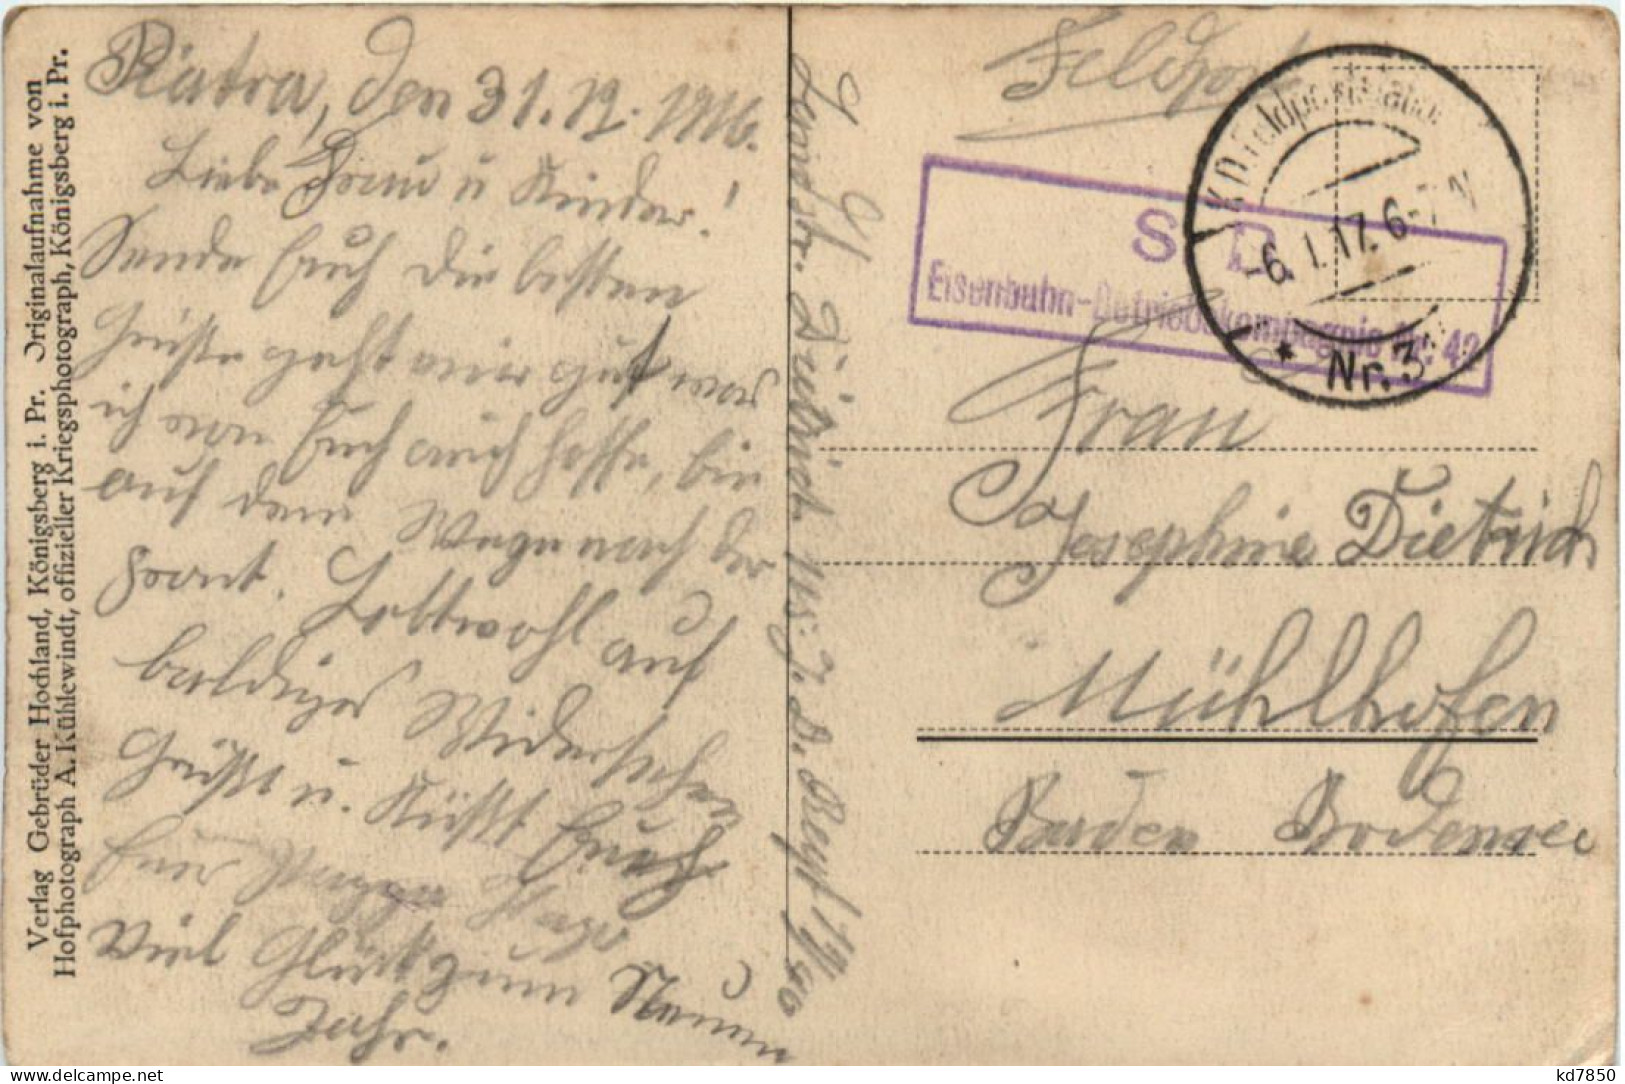 Verlag Gebrüder Hochland, Königsberg i. Pr. Originalaufnahme von
Hofphotograph A. Kühlewindt, offizieller Kriegsphotograph, Königsberg i. Pr.
Piatra, den 31. 12. 1916.
Liebe Frau u Kinder!
Sende Euch die besten
Grüße geht mir gut was
ich von Euch auch hoffe, bin
auf dem Wege nach der
Front. Lebtwohl auf
baldiges Widersehen
Grüßt u. Küßt Euch
Euer
Viel Glück zum Neuen
Jahr.
Dietrich
Feldpost
K.D. Feldpoststation
-6. 1. 17. 6-7 N
* Nr. 3
S. B.
Eisenbahn-Betriebskompagnie Nr. 42
Frau
Josephine Dietrich
Mühlhofen
Baden Bodensee
kd7850